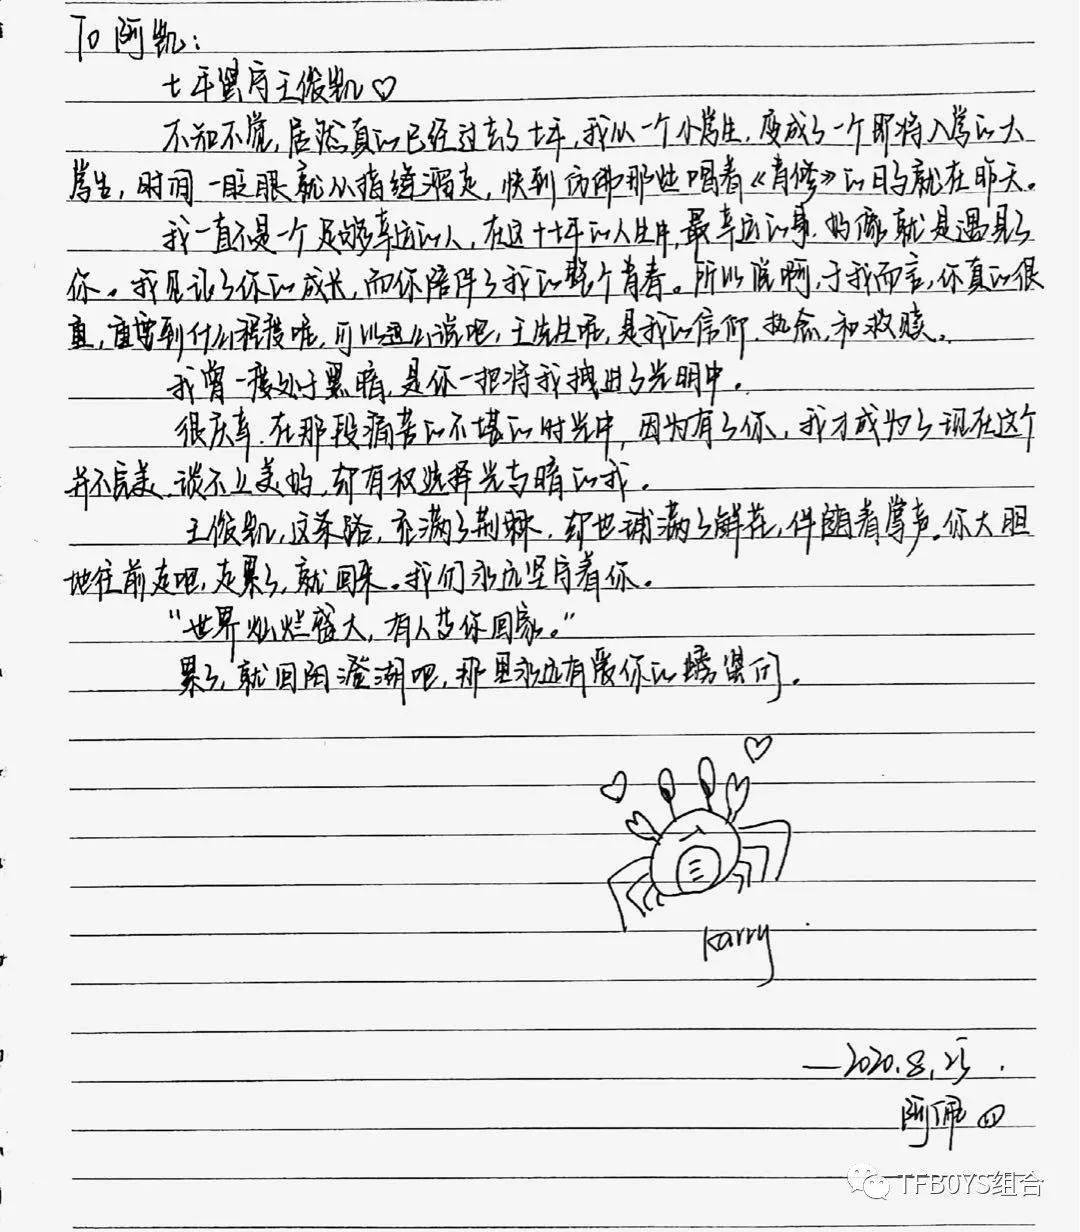 To 阿凯：
七年坚守王俊凯♡
不知不觉，居然真的已经过去了七年，我从一个小学生，变成了一个即将入学的大
学生，时间一眨眼就从指缝溜走，快到仿佛那些唱着《青修》的日子就在昨天。
我一直不是一个足够幸运的人，在这十七年的人生中，最幸运的事，好像就是遇见了
你。我见证了你的成长，而你陪伴了我的整个青春。所以说啊，于我而言，你真的很
重，重要到什么程度呢，可以这么说吧，王先生呢，是我的信仰、执念、和救赎。
我曾一度处于黑暗，是你一把将我拽进了光明中。
很庆幸，在那段痛苦的不堪的时光中，因为有了你，我才成为了现在这个
并不完美、谈不上美好，却有权选择光与暗的我。
王俊凯，这条路，充满了荆棘，却也铺满了鲜花，伴随着掌声。你大胆
地往前走吧，走累了，就回来。我们永远坚守着你。
“世界灿烂盛大，有人等你回家。”
累了，就回阳澄湖吧，那里永远有爱你的螃蟹们。
Karry
—2020.8.25.
阿佩
TFBOYS组合